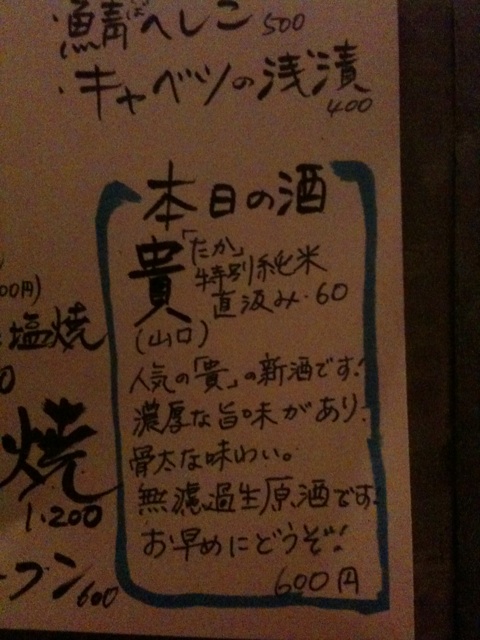 鯖へしこ 500
キャベツの浅漬
400
本日の酒
貴「たか」
特別純米
直汲み・60
(山口)
人気の「貴」の新酒です!
濃厚な旨味があり、
骨太な味わい。
無濾過生原酒です
お早めにどうぞ!
600円
00円)
塩焼
0
焼
1.200
フン 600